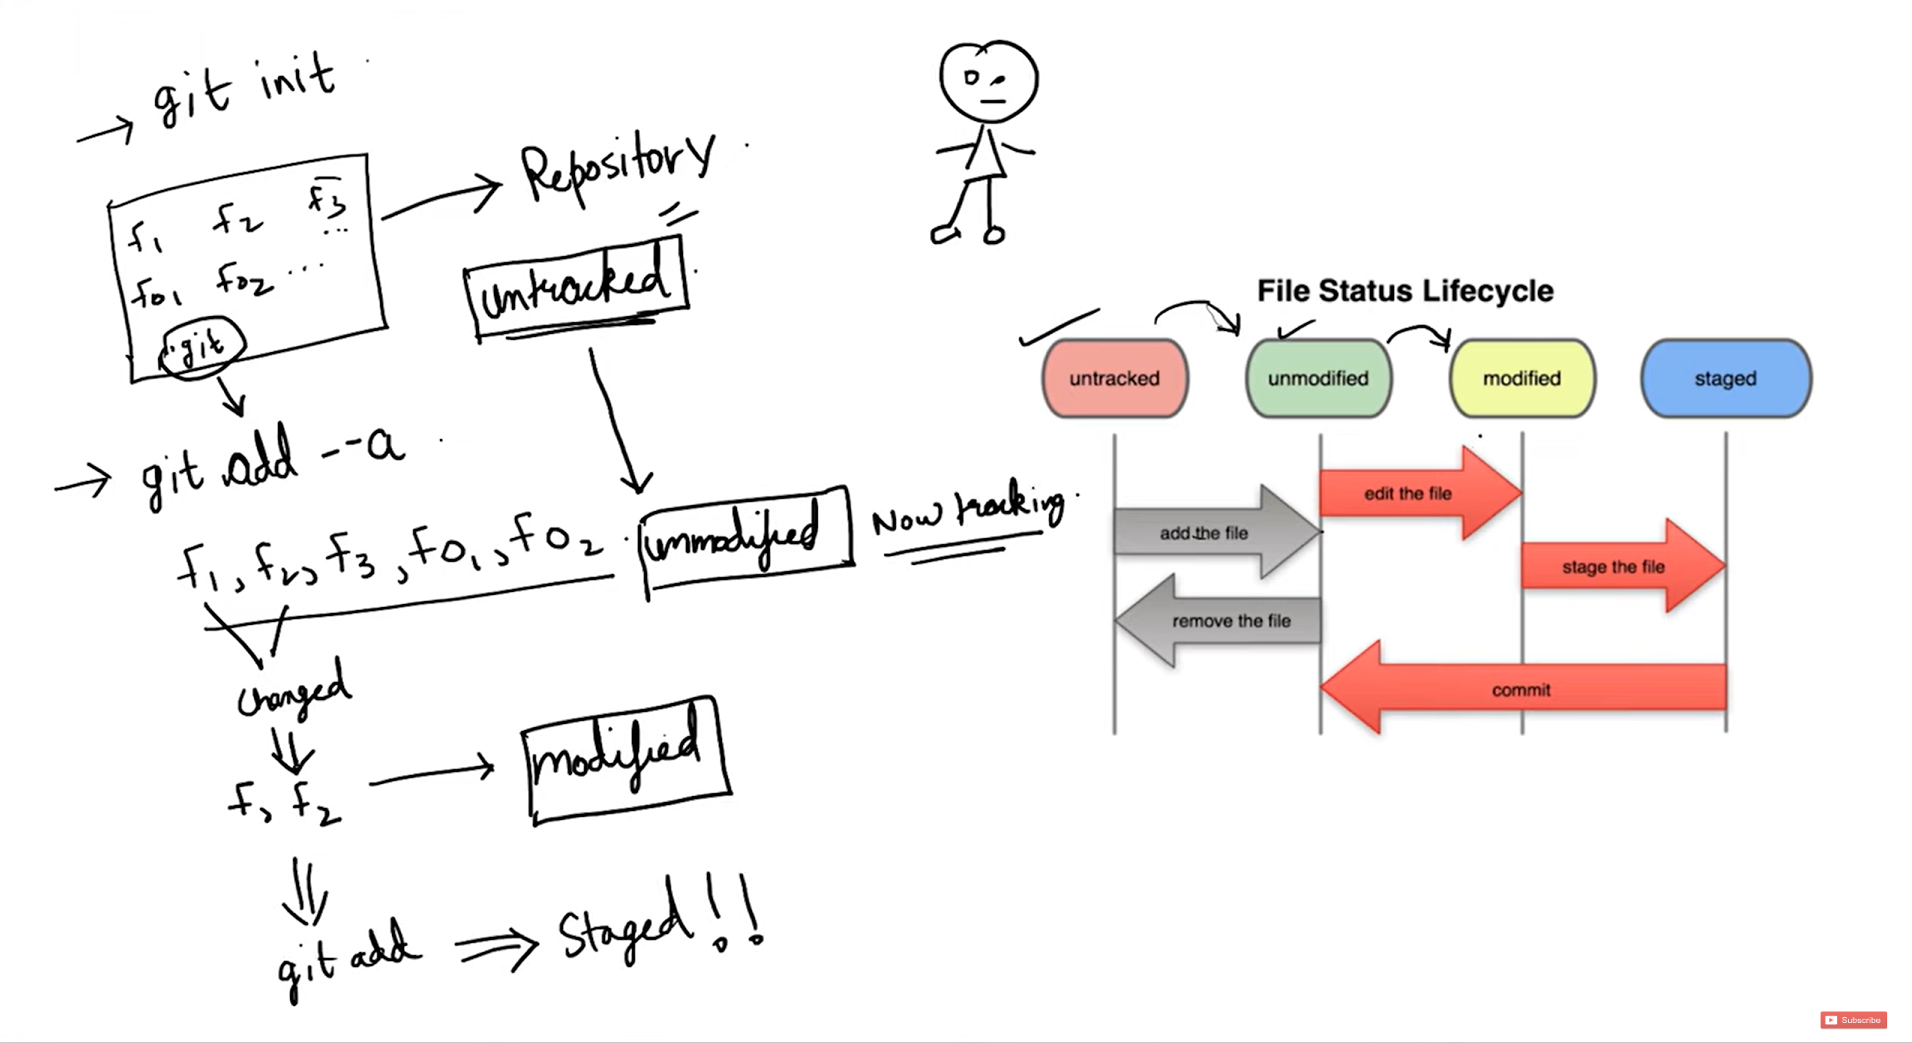 → git init
f1 f2 f3 ...
f01 f02 ...
.git
→ Repository
untracked
→ git add --a
f1, f2, f3, f01, f02
unmodified
Now tracking
changed
f, f2
modified
git add ⇒ Staged!!
File Status Lifecycle
untracked unmodified modified staged
edit the file
add the file
stage the file
remove the file
commit
Subscribe